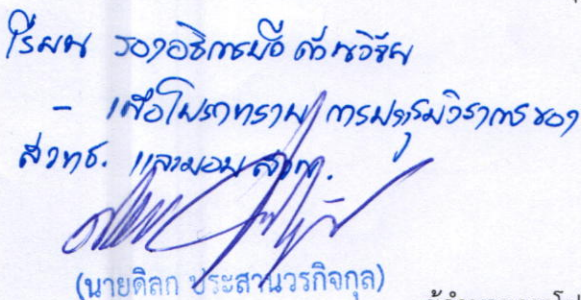 เรียน รองอธิการบดี ด้านวิจัย
- เพื่อโปรดทราบ การประชุมวิชาการ ของ
สวทช. และมอบ
(นายดิลก ประสานวรกิจกุล)